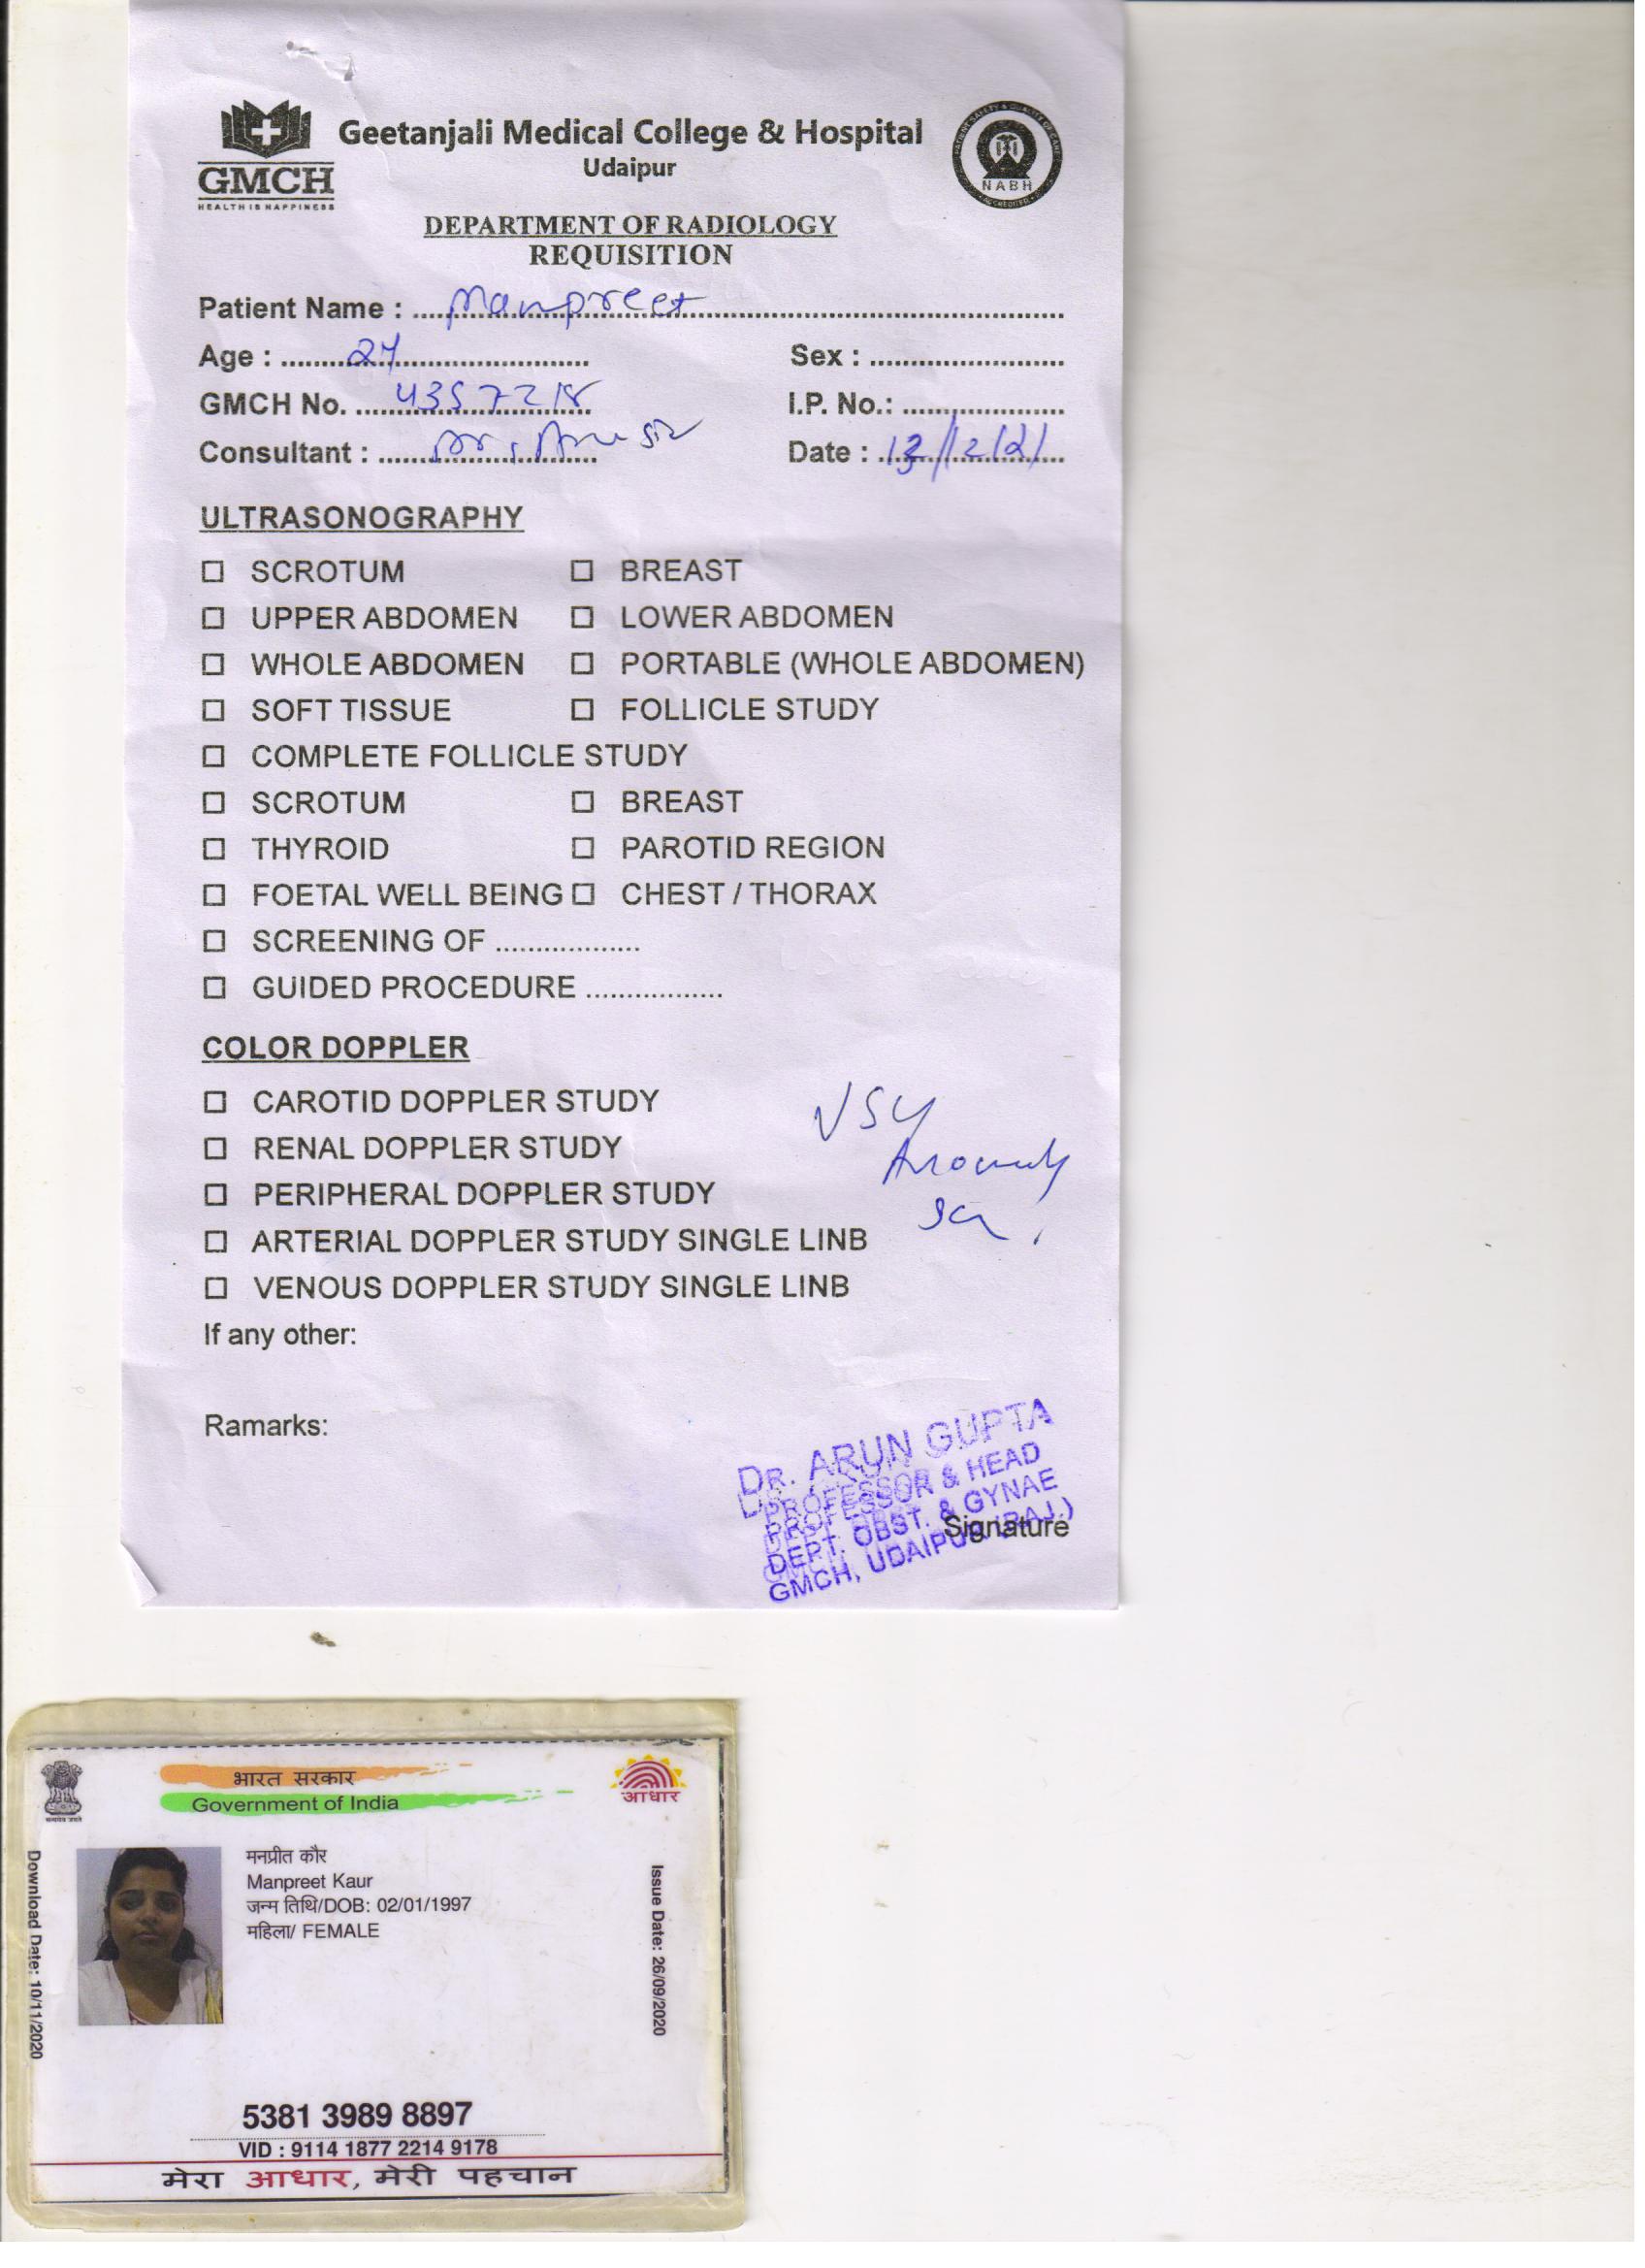 GMCH
HEALTH IS HAPPINESS
Geetanjali Medical College & Hospital
Udaipur
NABH
DEPARTMENT OF RADIOLOGY
REQUISITION
Patient Name : Manpreet
Age : 24 Sex :
GMCH No. I.P. No.:
Consultant : Dr. Date : 13/12/21
ULTRASONOGRAPHY
SCROTUM BREAST
UPPER ABDOMEN LOWER ABDOMEN
WHOLE ABDOMEN PORTABLE (WHOLE ABDOMEN)
SOFT TISSUE FOLLICLE STUDY
COMPLETE FOLLICLE STUDY
SCROTUM BREAST
THYROID PAROTID REGION
FOETAL WELL BEING CHEST / THORAX
SCREENING OF ..................
GUIDED PROCEDURE .................
COLOR DOPPLER
CAROTID DOPPLER STUDY
RENAL DOPPLER STUDY
PERIPHERAL DOPPLER STUDY
ARTERIAL DOPPLER STUDY SINGLE LINB
VENOUS DOPPLER STUDY SINGLE LINB
USG
Anomaly
If any other:
Ramarks:
DR. ARUN GUPTA
PROFESSOR & HEAD
DEPT. OBST. & GYNAE
GMCH, UDAIPUR (RAJ.)
Signature
भारत सरकार
Government of India
आधार
मनप्रीत कौर
Manpreet Kaur
जन्म तिथि/DOB: 02/01/1997
महिला/ FEMALE
Download Date: 10/11/2020
Issue Date: 26/09/2020
5381 3989 8897
VID : 9114 1877 2214 9178
मेरा आधार, मेरी पहचान